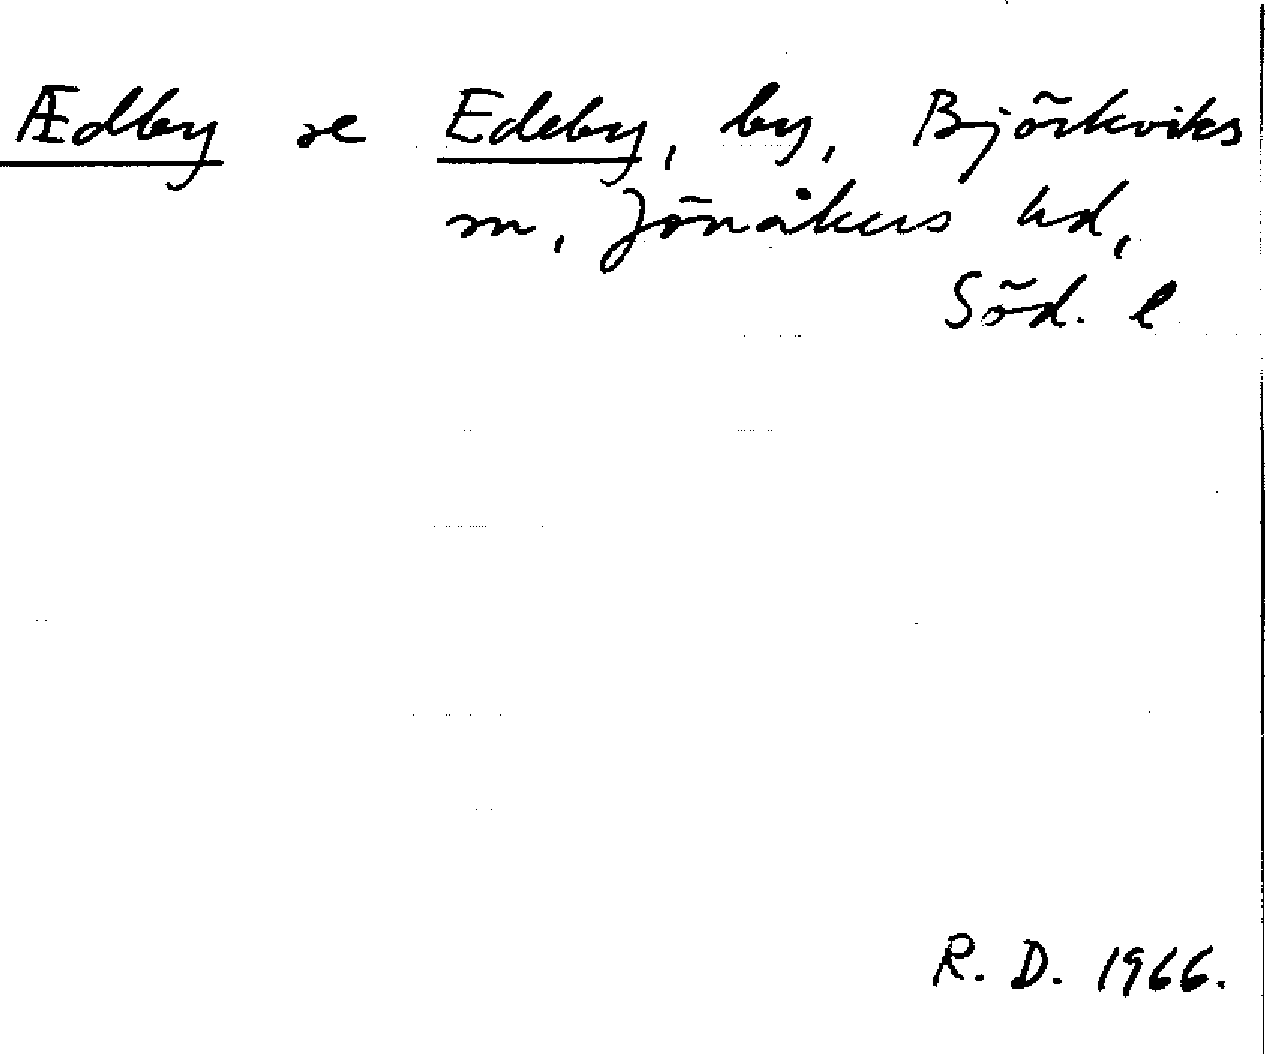 Ædby se Edeby, by, Björkviks
sn, Jönåkers hd,
Söd. l
R. D. 1966.